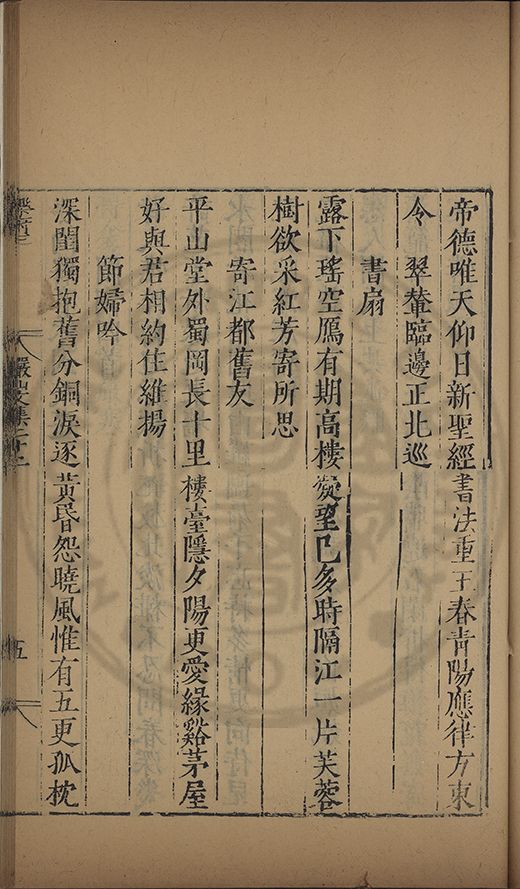 帝德唯天仰日新聖經書法重王春青陽應律方東
令翠輦臨邊正北巡
書扇
露下瑤空鴈有期高樓凝望已多時隔江一片芙蓉
樹欲采紅芳寄所思
寄江都舊友
平山堂外蜀岡長十里樓臺隱夕陽更愛緣谿茅屋
好與君相約住維揚
節婦吟
深閨獨抱舊分銅淚逐黃昏怨曉風惟有五更孤枕
五